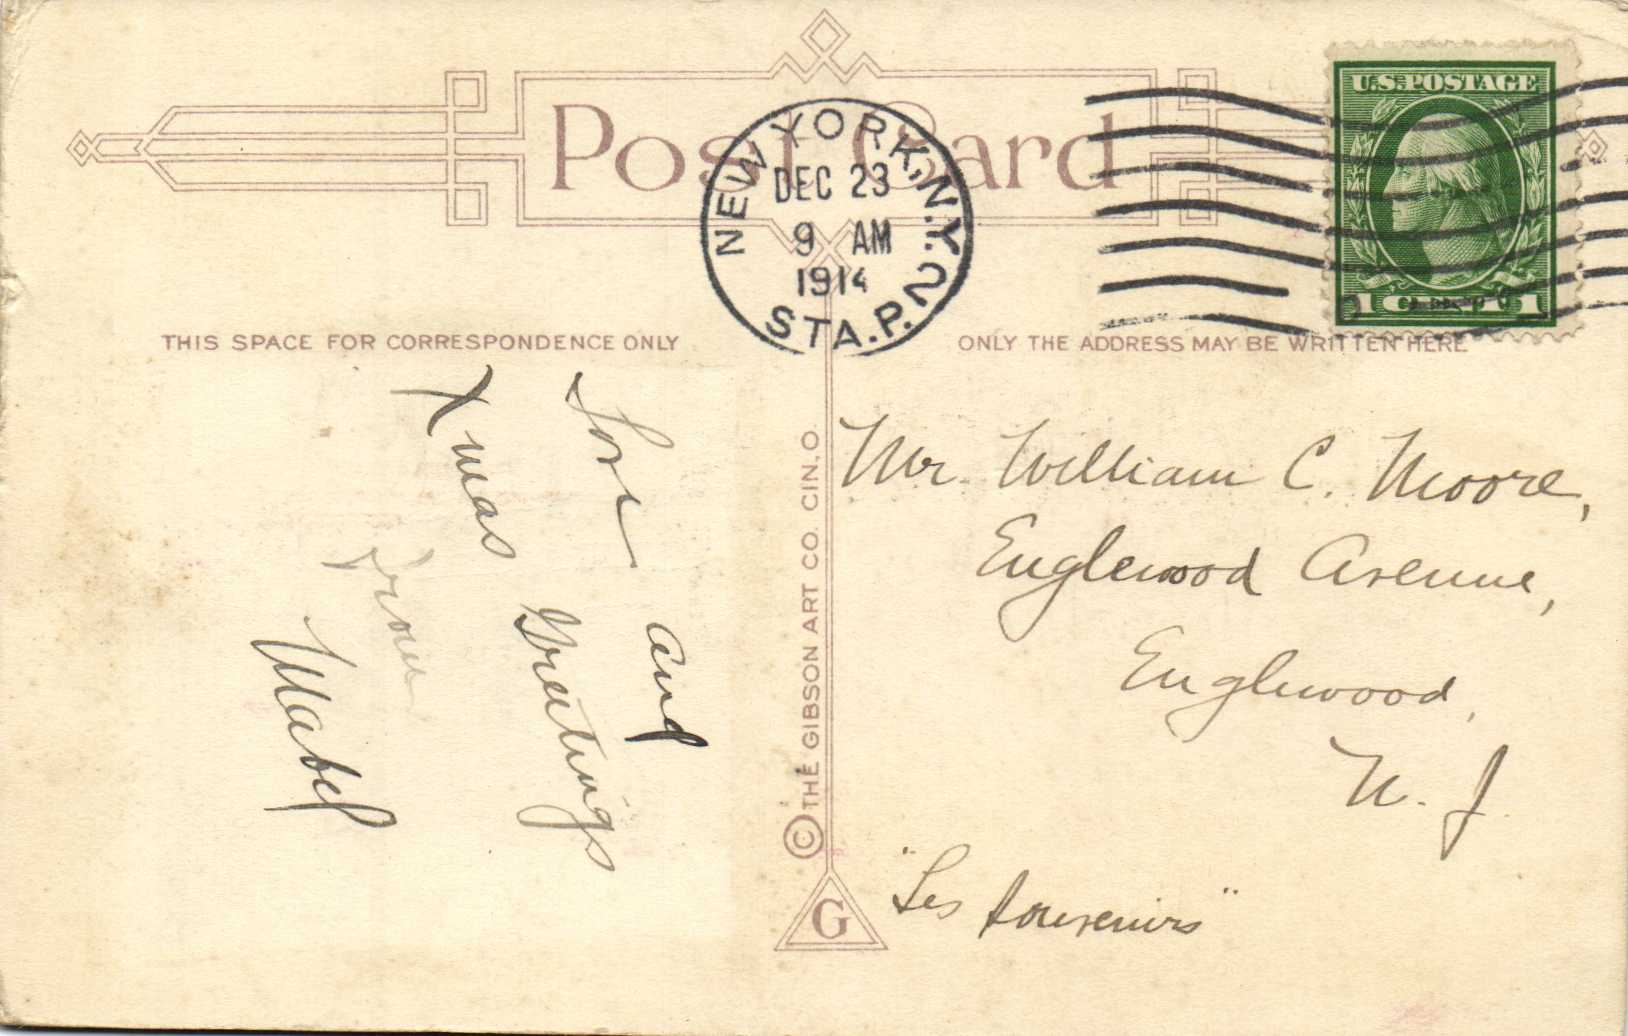 Post Card
NEW YORK, N.Y. 2
DEC 23
9 AM
1914
STA. P.
U.S. POSTAGE
1 CENT 1
THIS SPACE FOR CORRESPONDENCE ONLY
ONLY THE ADDRESS MAY BE WRITTEN HERE
Love and
Xmas Greetings
from
Mabel
© THE GIBSON ART CO. CIN. O.
G
Mr. William C. Moore,
Englewood Avenue,
Englewood,
N. J.
"Les Souvenirs"